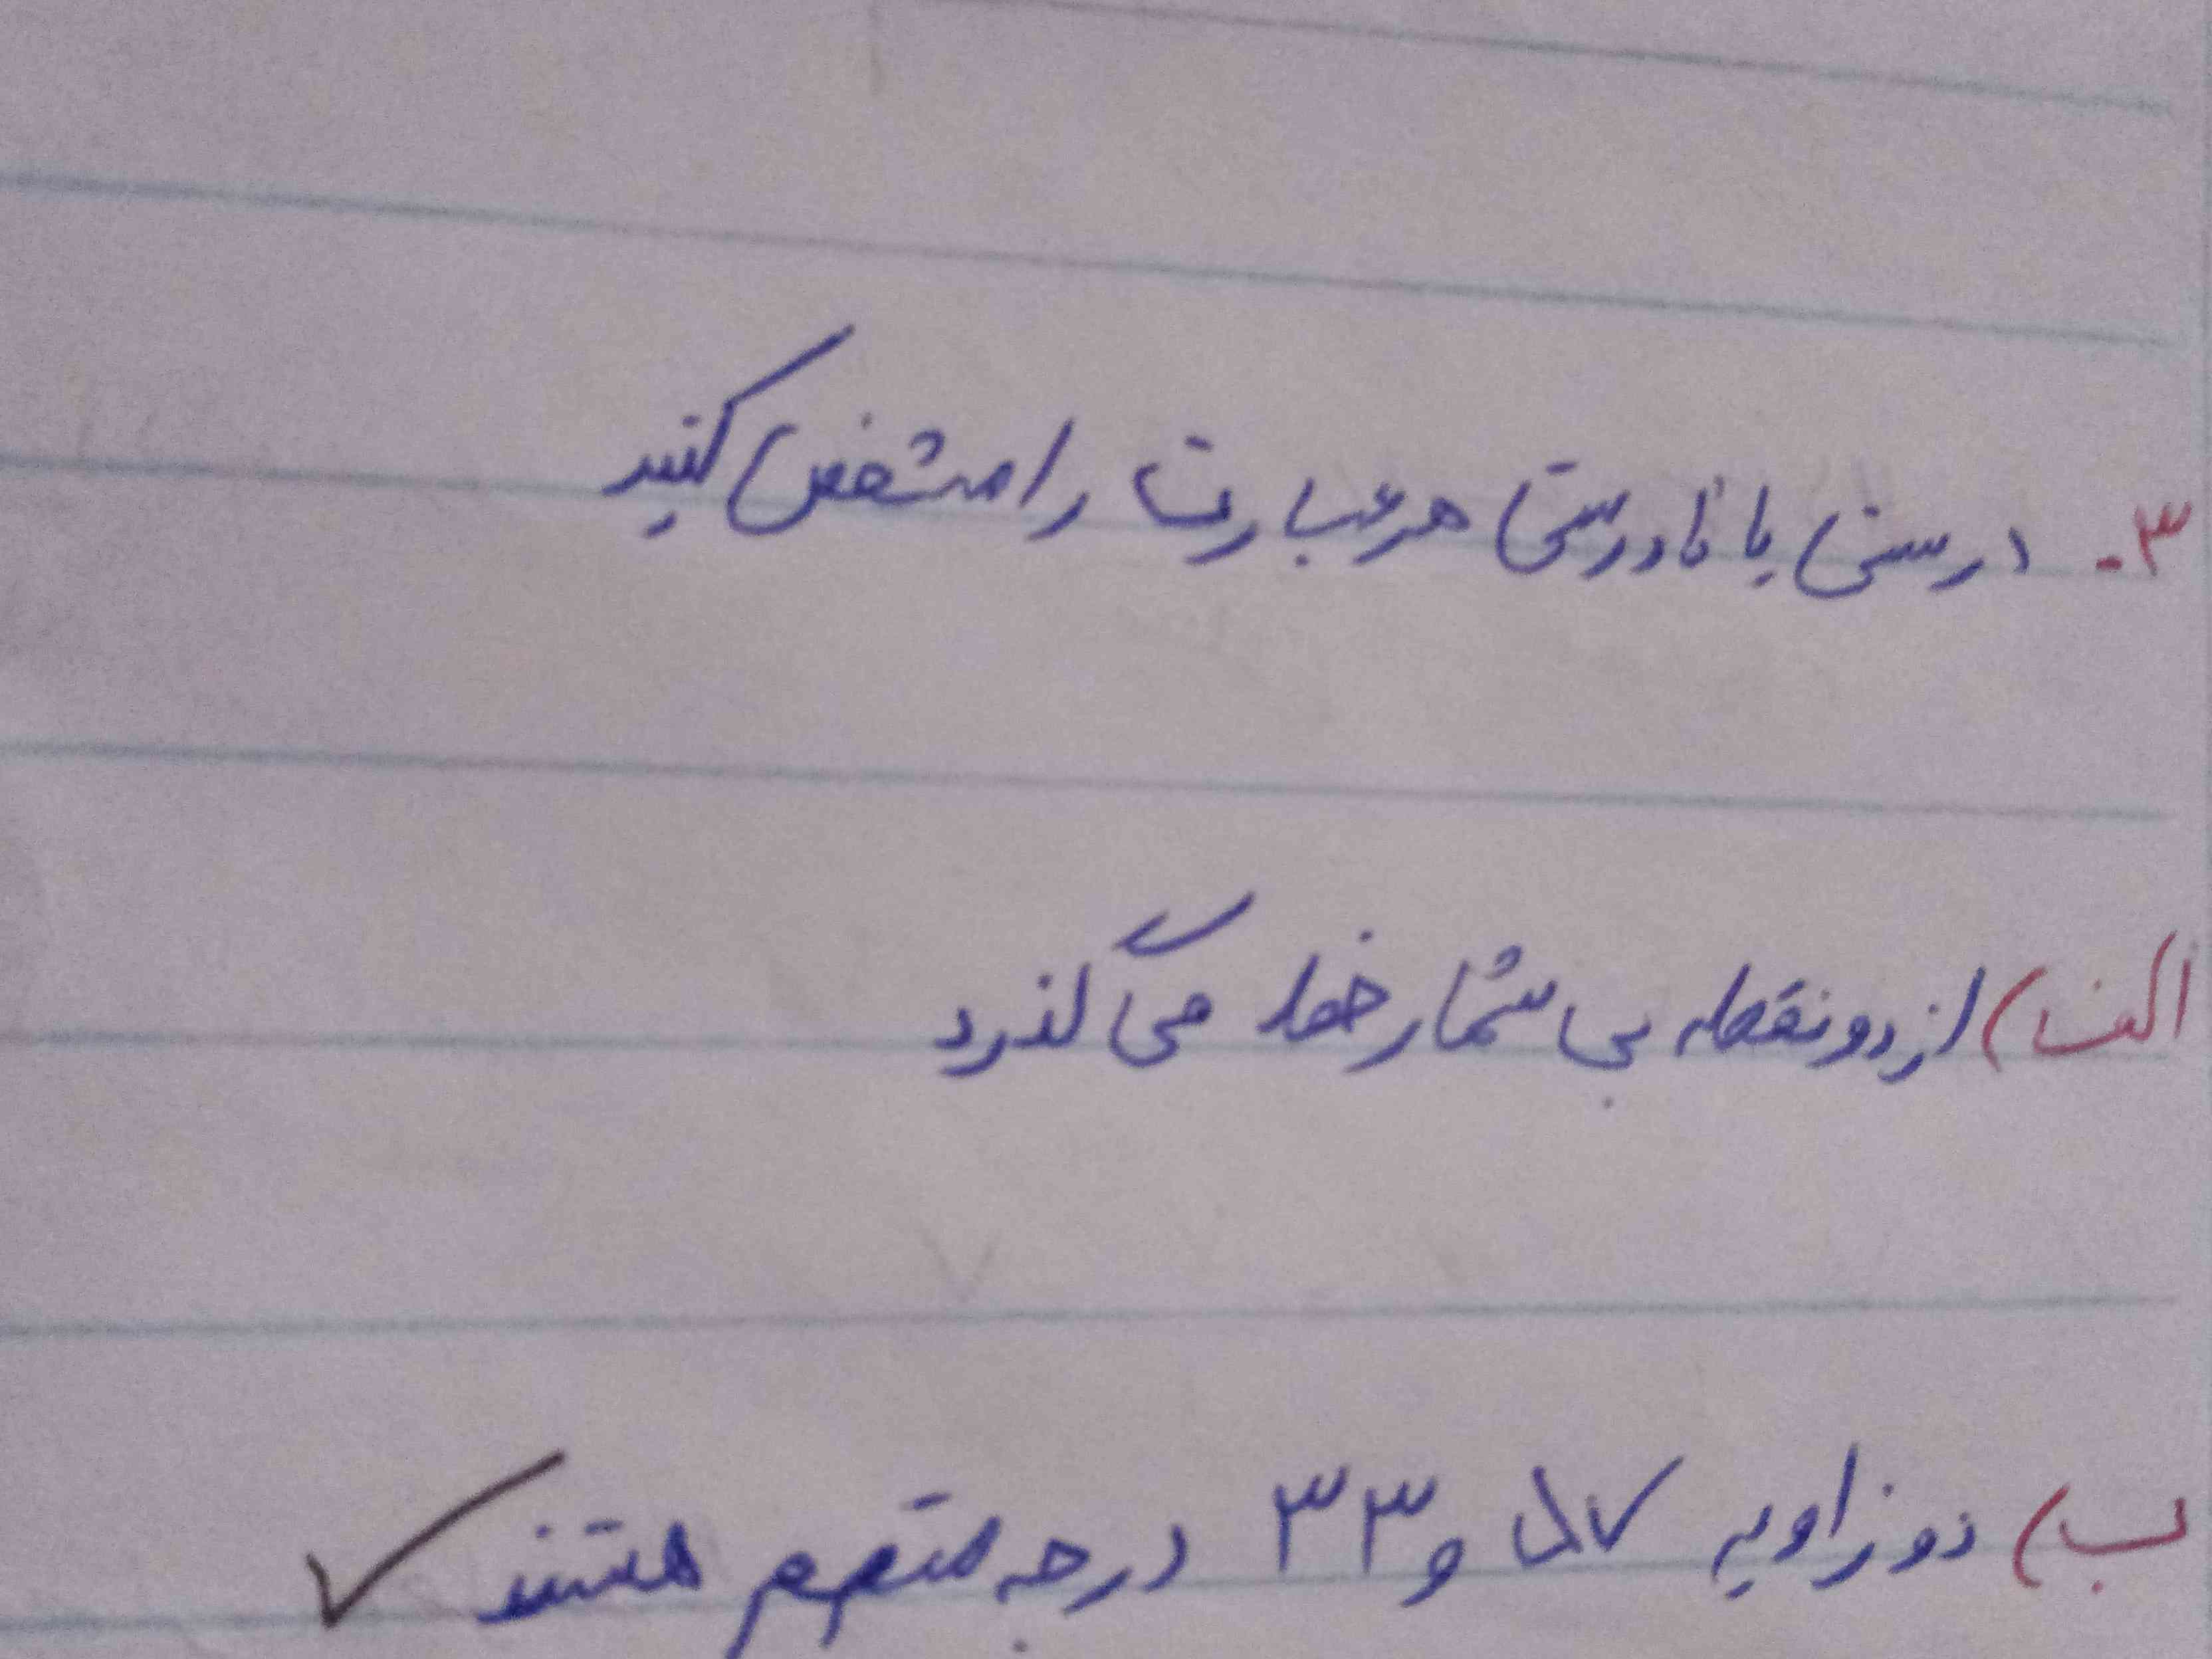 ۳- درستی یا نادرستی هر عبارت را مشخص کنید
الف) از دو نقطه بی شمار خط می گذرد
ب) دو زاویه ۵۷ و ۳۳ درجه متمم هستند ✓